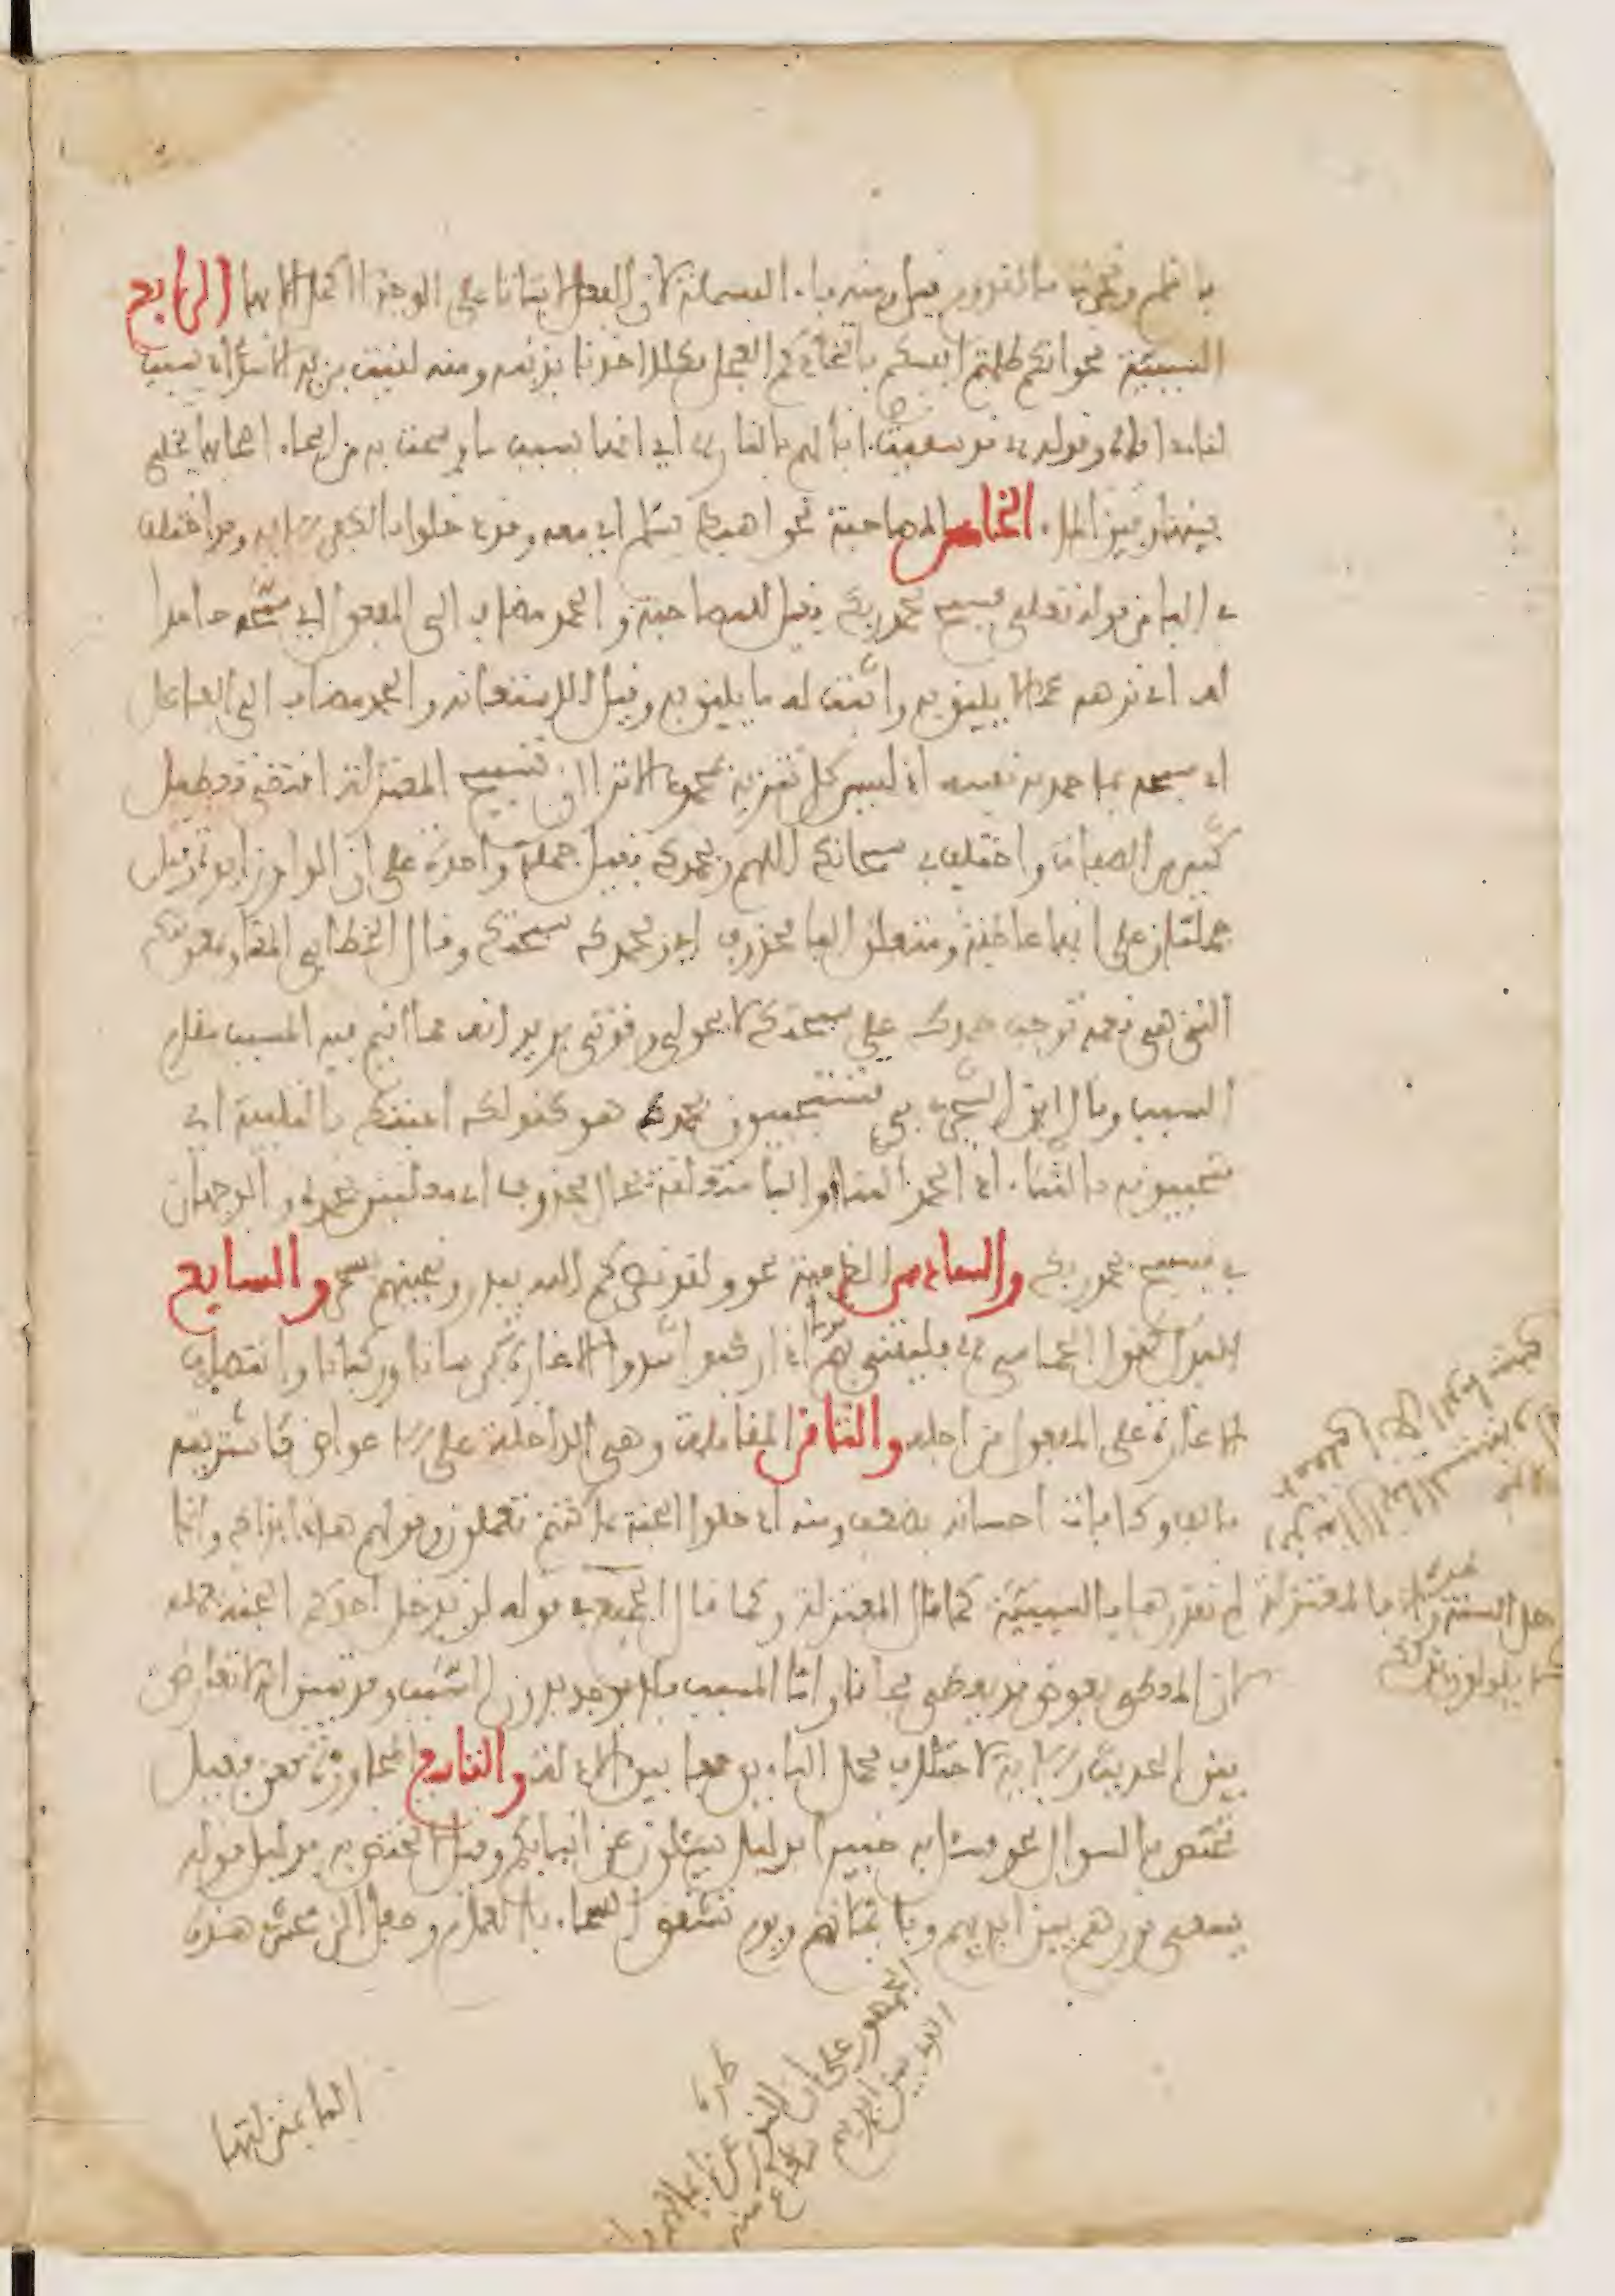 بالقلم ونجرت بالقدوم قيل ومنه باء البسملة لان الفعل لا يتاتى على الوجه الاكمل الا بها الرابع
السببية نحو انكم ظلمتم انفسكم باتخاذكم العجل فكلا اخذنا بذنبه ومنه لقيت بزيد الاسد اي بسبب
لقاءي اياه وقوله قد سقيت ابالهم بالنار اي انها بسبب ما وسمت به من اسماء اصحابها يخلى
بينها وبين الماء الخامس المصاحبة نحو اهبط بسلم اي معه وقد دخلوا بالكفر الاية وقد اختلف
في الباء من قوله تعلى فسبح بحمد ربك فقيل للمصاحبة والحمد مضاف الى المفعول اي سبحه حامدا
له اي نزهه عما لا يليق به واثبت له ما يليق به وقيل للاستعانة والحمد مضاف الى الفاعل
اي سبحه بما حمد به نفسه اذ ليس كل تنزيه بمحمود الا ترا ان تسبيح المعتزلة اقتضى تعطيل
كثير من الصفات واختلف في سبحانك اللهم وبحمدك فقيل جملة واحدة على ان الواو زايدة وقيل
جملتان على انها عاطفة ومتعلق البا محذوف اي وبحمدك سبحتك وقال الخطابي المعنا وبمعونتك
التي هي نعمة توجب حمدك علي سبحتك لا بحولي وقوتي يريد انه مما اقيم فيه المسبب مقام
السبب وقال ابن الشجري في فتستجيبون بحمده هو كقولك اجبتك بالتلبية اي
فتجيبونه بالثناء اذ الحمد الثنا او البا متعلقة بحال محذوف اي معلنين بحمده والوجهان
في فسبح بحمد ربك والسادس الظرفية نحو ولقد نصركم الله ببدر ونجينهم بسحر والسابع
البدل كقول الحماسي فليت لي بهم قوما اذا ركبوا شدوا الاغارة فرسانا وركبانا وانتصاب
الاغارة على المفعول من اجله والثامن المقابلة وهي الداخلة على الاعواض كاشتريته
بالف وكافات احسانه بضعف ومنه ادخلوا الجنة بما كنتم تعملون وقولهم هذا بذاك وانما
لم نقدرها بالسببية كما قال المعتزلة وكما قال الجميع في قوله لن يدخل احدكم الجنة بعمله
لان المعطي بعوض قد يعطي مجانا واما المسبب فلا يوجد بدون السبب وقد تبين انه لا تعارض
بين الحديث والاية لاختلاف محمل الباءين جمعا بين الادلة والتاسع المجاوزة كعن فقيل
تختص بالسوال نحو فسئل به خبيرا بدليل يسئلون عن انبائكم وقيل لا تختص به بدليل قوله
يسعى نورهم بين ايديهم وبايمانهم ويوم تشقق السماء بالغمام وجعل الزمخشري هذه
الباء بمنزلتها
طرة
الجمهور على ان